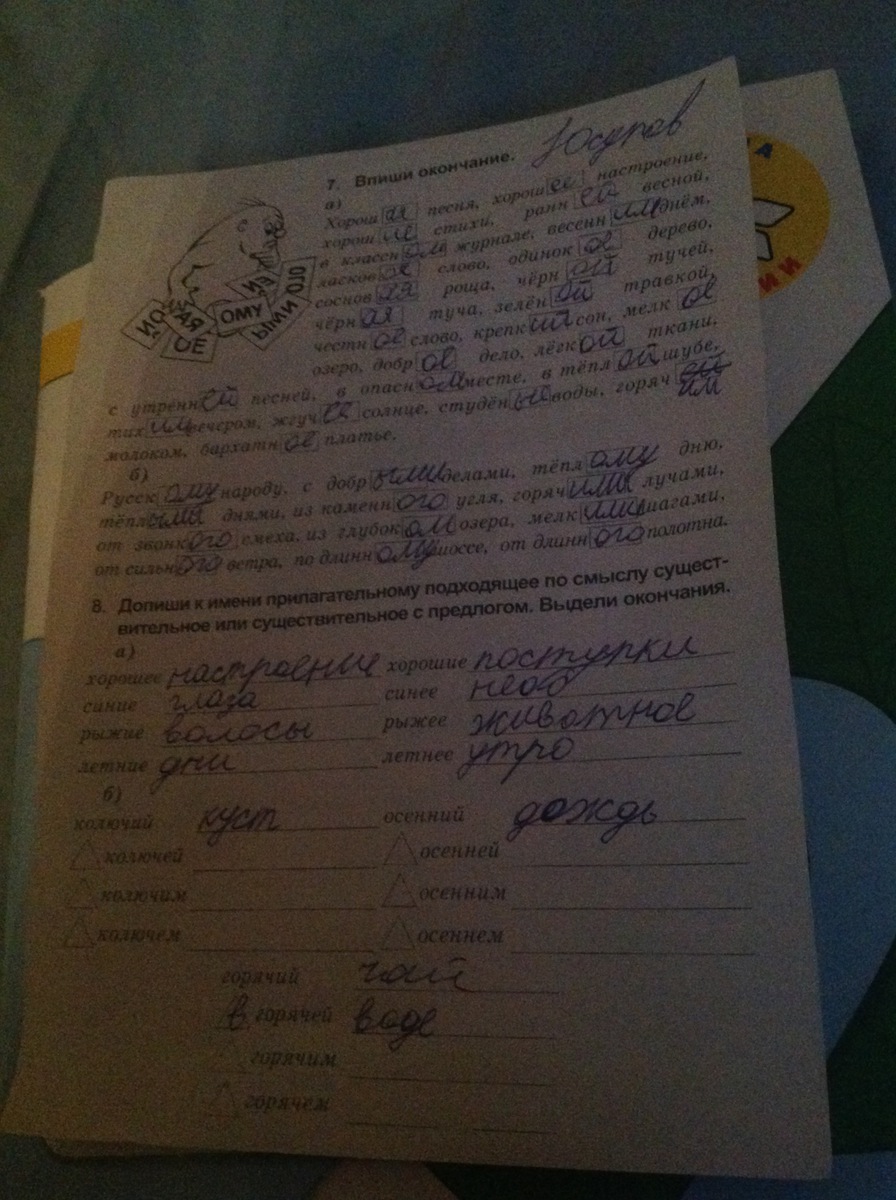 Юсупов
7. Впиши окончание.
а)
Хорошая песня, хорошее настроение,
хорошие стихи, ранней весной,
в классном журнале, весенним днём,
ласковое слово, одинокое дерево,
сосновая роща, чёрной тучей,
чёрная туча, зелёной травкой,
честное слово, крепкий сон, мелкое
озеро, доброе дело, лёгкой ткани,
с утренней песней, в опасном месте, в тёплой шубе,
тихим вечером, жгучее солнце, студёные воды, горячим
молоком, бархатное платье.
б)
Русскому народу, с добрыми делами, тёплому дню,
тёплыми днями, из каменного угля, горячими лучами,
от звонкого смеха, из глубоком озера, мелкими шагами,
от сильного ветра, по длинному шоссе, от длинного полотна.
8. Допиши к имени прилагательному подходящее по смыслу сущест-
вительное или существительное с предлогом. Выдели окончания.
а)
хорошее настроение хорошие поступки
синие глаза синее небо
рыжие волосы рыжее животное
летние дни летнее утро
б)
колючий куст осенний дождь
колючей осенней
колючим осенним
колючем осеннем
горячий чай
в горячей воде
горячим
горячем
ИЕ
АЯ
ОЕ
ОМУ
ЫМИ
ОГО